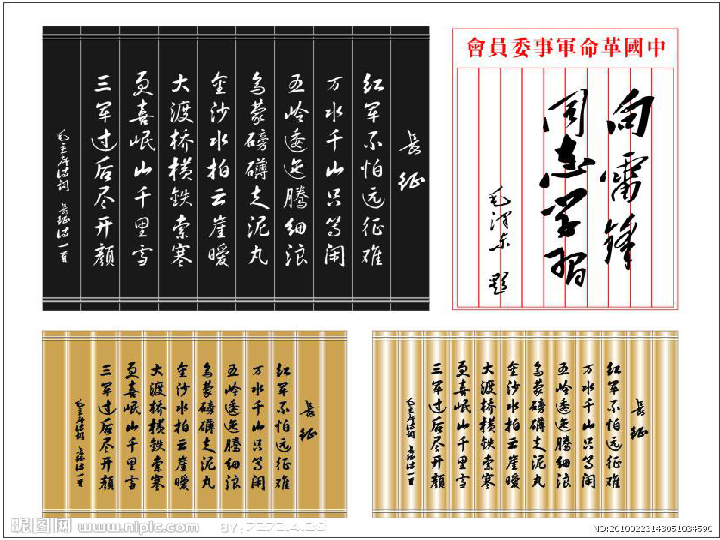 长征
红军不怕远征难
万水千山只等闲
五岭逶迤腾细浪
乌蒙磅礴走泥丸
金沙水拍云崖暖
大渡桥横铁索寒
更喜岷山千里雪
三军过后尽开颜
毛主席诗词 长征诗一首
中國革命軍事委員會
向雷锋
同志学习
毛泽东 题
长征
红军不怕远征难
万水千山只等闲
五岭逶迤腾细浪
乌蒙磅礴走泥丸
金沙水拍云崖暖
大渡桥横铁索寒
更喜岷山千里雪
三军过后尽开颜
毛主席诗词 长征诗一首
长征
红军不怕远征难
万水千山只等闲
五岭逶迤腾细浪
乌蒙磅礴走泥丸
金沙水拍云崖暖
大渡桥横铁索寒
更喜岷山千里雪
三军过后尽开颜
毛主席诗词 长征诗一首
昵图网 www.nipic.com BY:7272.4.20
NO:20100223143051034590